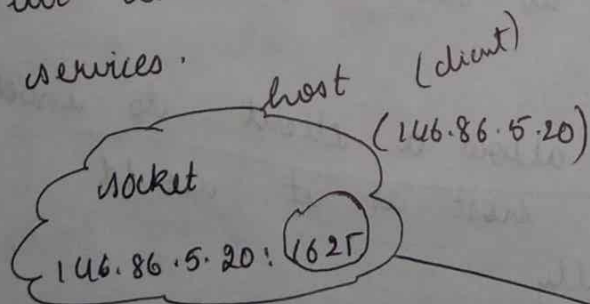 services.
host (client)
(146.86.5.20)
socket
146.86.5.20: 1625